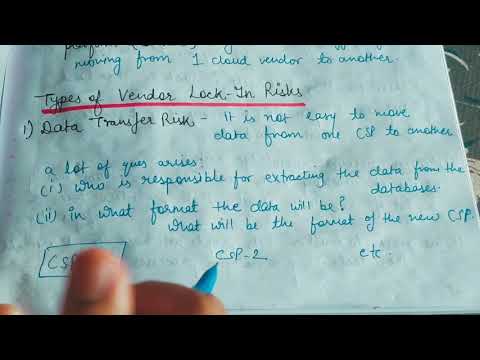 moving from 1 cloud vendor to another.
Types of Vendor Lock-In Risks
1) Data Transfer Risk - It is not easy to move
data from one CSP to another
a lot of ques arises:
(i) who is responsible for extracting the data from the
databases.
(ii) in what format the data will be?
what will be the format of the new CSP.
CSP CSP-2 etc.